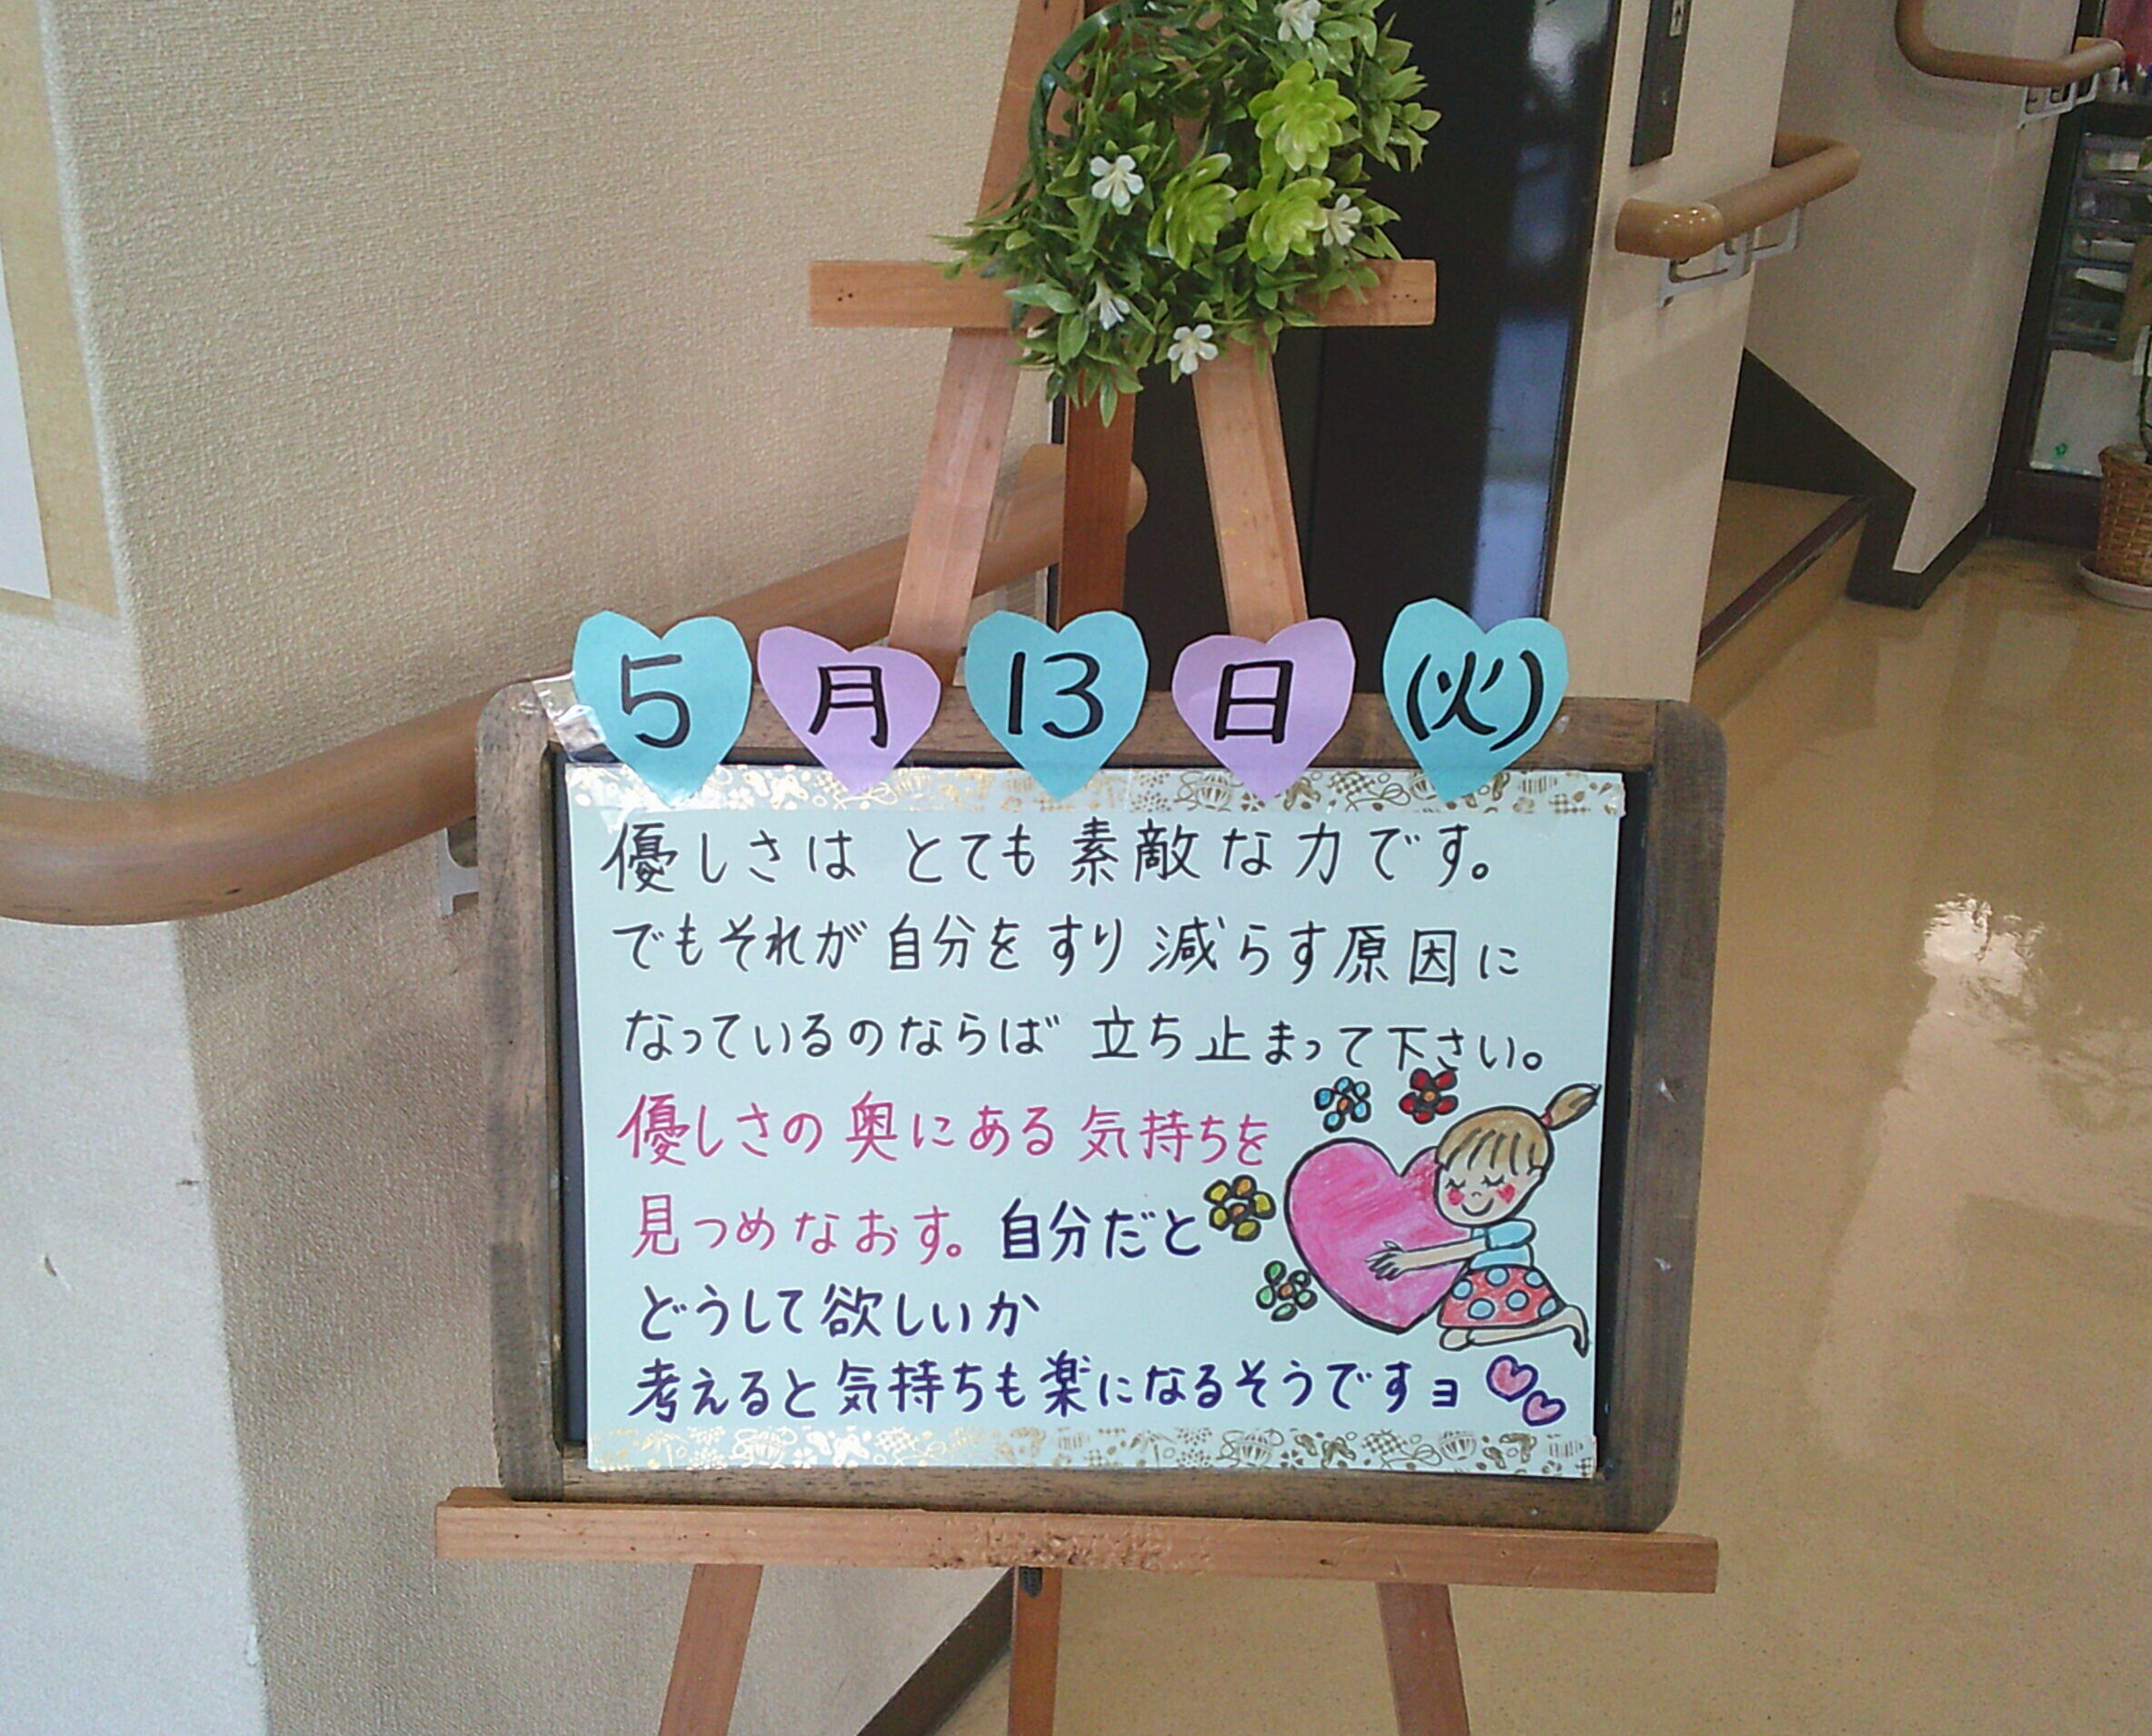 5月13日(火)
優しさは とても 素敵な力です。
でもそれが 自分を すり 減らす原因に
なっているのならば 立ち止まって下さい。
優しさの 奥にある 気持ちを
見つめなおす。自分だと
どうして欲しいか
考えると気持ちも楽になるそうですヨ